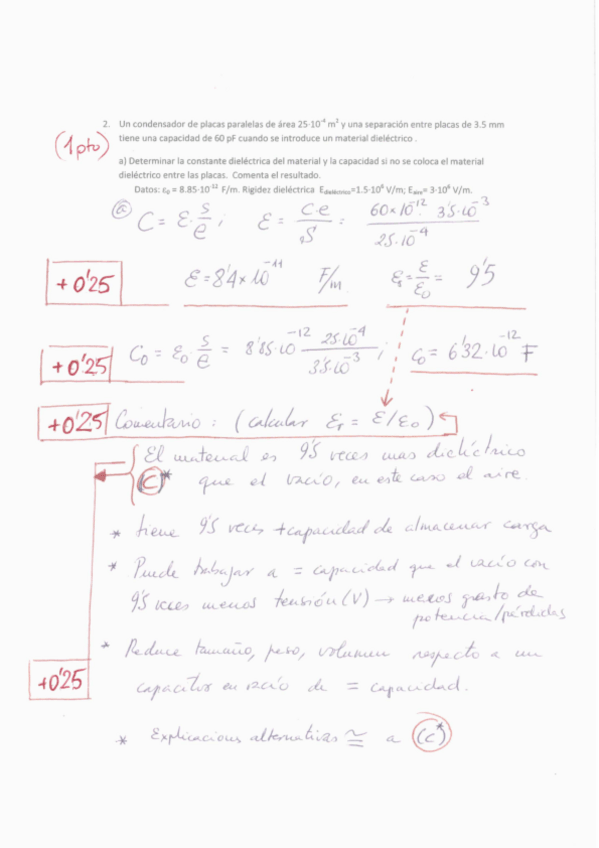 2. Un condensador de placas paralelas de área 25·10⁻⁴ m² y una separación entre placas de 3.5 mm
(1 pto) tiene una capacidad de 60 pF cuando se introduce un material dieléctrico .
a) Determinar la constante dieléctrica del material y la capacidad si no se coloca el material
dieléctrico entre las placas. Comenta el resultado.
Datos: ε₀ = 8.85·10⁻¹² F/m. Rigidez dieléctrica E_dieléctrico=1.5·10⁶ V/m; E_aire= 3·10⁶ V/m.
ⓐ C = ε · s/e ; ε = C·e/S = 60×10⁻¹² · 3'5·10⁻³ / 25·10⁻⁴
+0'25 ε = 8'4×10⁻¹¹ F/m εr = ε/ε₀ = 9'5
+0'25 C₀ = ε₀ · s/e = 8'85·10⁻¹² 25·10⁻⁴ / 3'5·10⁻³ ; C₀ = 6'32·10⁻¹² F
+0'25 Comentario : (calcular εr = ε/ε₀)
El material es 9'5 veces mas dieléctrico
(C)* que el vacío, en este caso el aire.
* tiene 9'5 veces + capacidad de almacenar carga
* Puede trabajar a = capacidad que el vacío con
9'5 veces menos tensión (V) → menos gasto de
potencia/pérdidas
* Reduce tamaño, peso, volumen respecto a un
+0'25 capacitor en vacío de = capacidad.
* Explicacions alternativas ≅ a (C*)